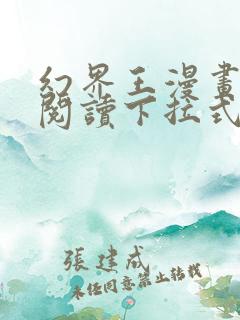 幻界王漫畫
閱讀下拉式
張建成
未經同意禁止轉載